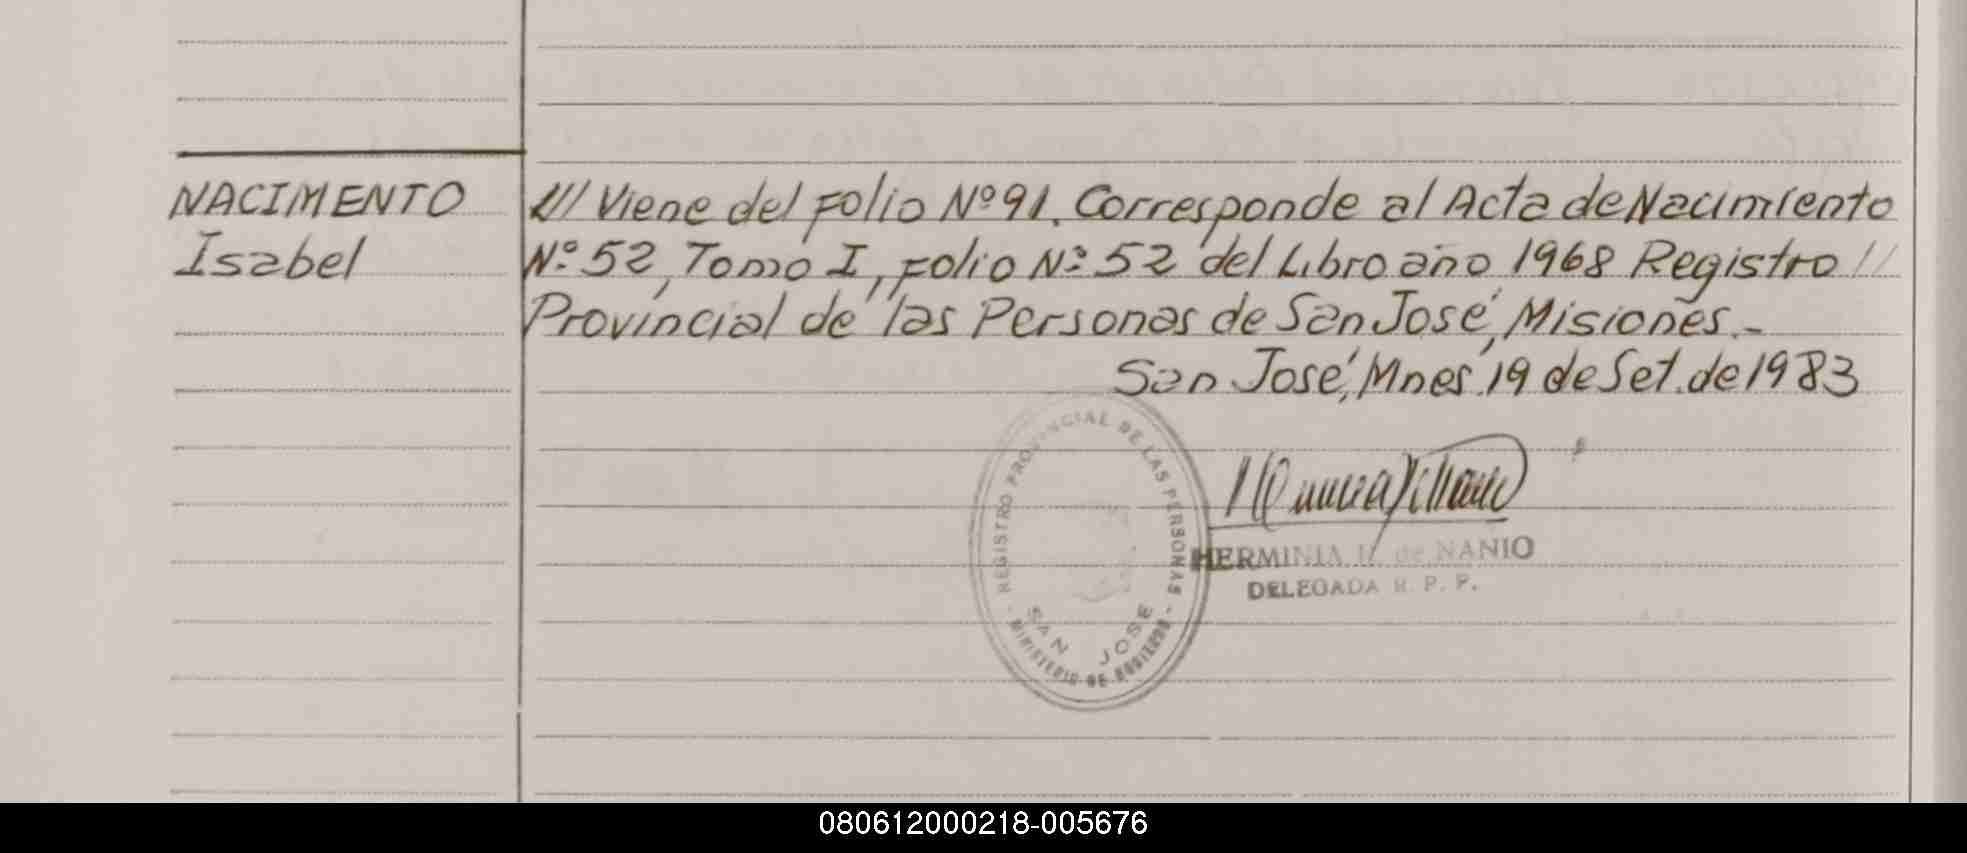 NACIMENTO
Isabel
/// Viene del Folio Nº 91. Corresponde al Acta de Nacimiento
Nº 52, Tomo I, Folio Nº 52 del Libro año 1968 Registro //
Provincial de las Personas de San José, Misiones.-
San José, Mnes. 19 de Set. de 1983
REGISTRO PROVINCIAL DE LAS PERSONAS
SAN JOSE
MINISTERIO DE GOBIERNO
HERMINIA de NANIO
DELEGADA R. P. P.
080612000218-005676